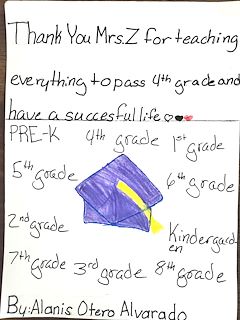 Thank You Mrs.Z for teaching
everything to pass 4th grade and
have a succesful life
PRE-K 4th grade 1st grade
5th grade 6th grade
2nd grade Kindergard
en
7th grade 3rd grade 8th grade
By: Alanis Otero Alvarado